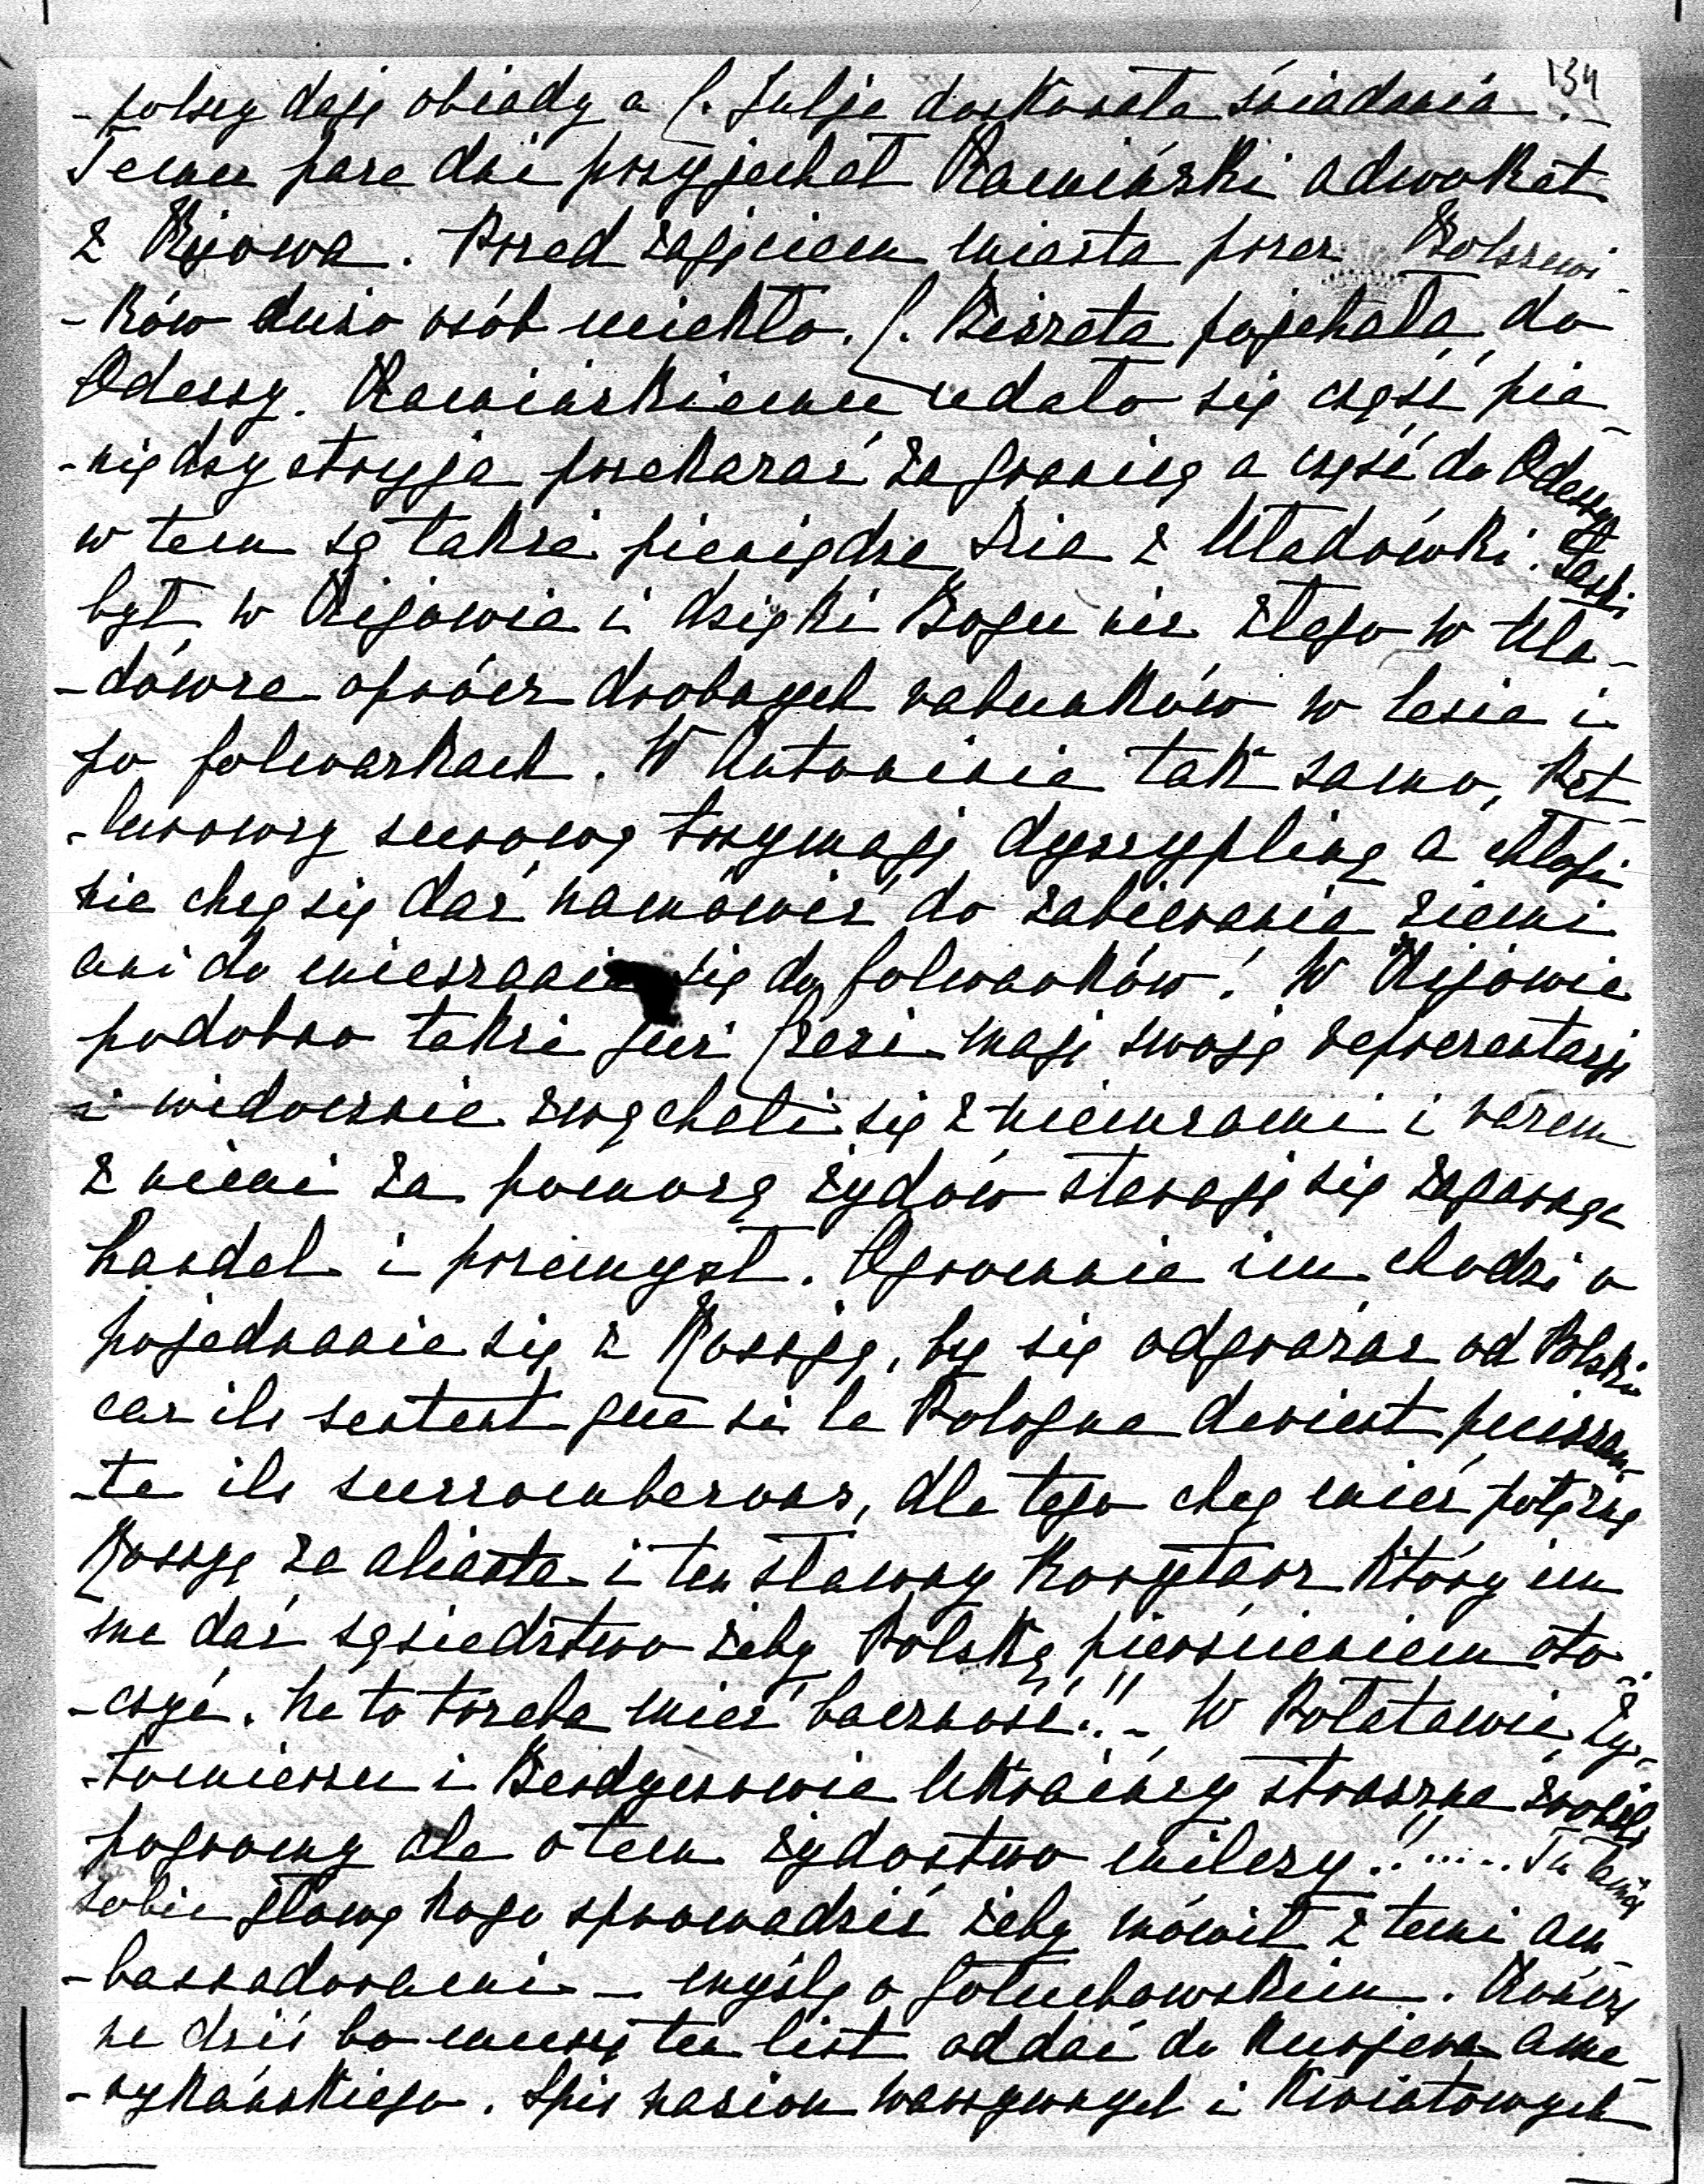 134
-polscy dają obiady a C. Julja doskonałe śniadania. -
Temu parę dni przyjechał Kamiński adwokat
z Kijowa. Przed zajęciem miasta przez Bolszewi-
-ków dużo osób uciekło. C. Biszeta pojechała do
Odessy. Kamińskiemu udało się część pie-
-niędzy stryja przekazać za granicę a część do Odessy
w tem są także pieniądze Zia z Uładówki.
był w Kijowie i dzięki Bogu nic złego w Uła-
-dówce oprócz drobnych rabunków w lesie i
po folwarkach. W Antoninie tak samo, Pet-
-lurowcy surową trzymają dyscyplinę a chłopi
nie chcą się dać namówić do zabierania ziemi
ani do mieszania się do folwarków! W Kijowie
podobno także już Czesi mają swoją reprezentację
i widocznie zwąchali się z niemcami i razem
z niemi za pomocą żydów starają się zagarnąć
handel i przemysł. Ogromnie im chodzi o
pojednanie się z Rossyą, by się odgradzać od Polski
car ils sentent que si la Pologne devient puissan-
-te ils succomberons, dla tego chcą mieć potężną
Rossyę za alianta i ten sławny Korytarz który im
ma dać sąsiedztwo żeby Polskę pierścieniem oto-
-czyć. Na to trzeba mieć baczność!! - W Połtawie, Ży-
-tomierzu i Berdyczowie Ukraińcy straszne zrobili
pogromy ale o tem żydostwo milczy!! ..... Tu łamią
sobie głowę kogo sprowadzić żeby mówił z temi am-
-bassadorami - myślę o Gołuchowskim. Kończę
na dziś bo muszę ten list oddać do Kurjera ame-
-rykańskiego. Spis nasion warzywnych i Kwiatowych